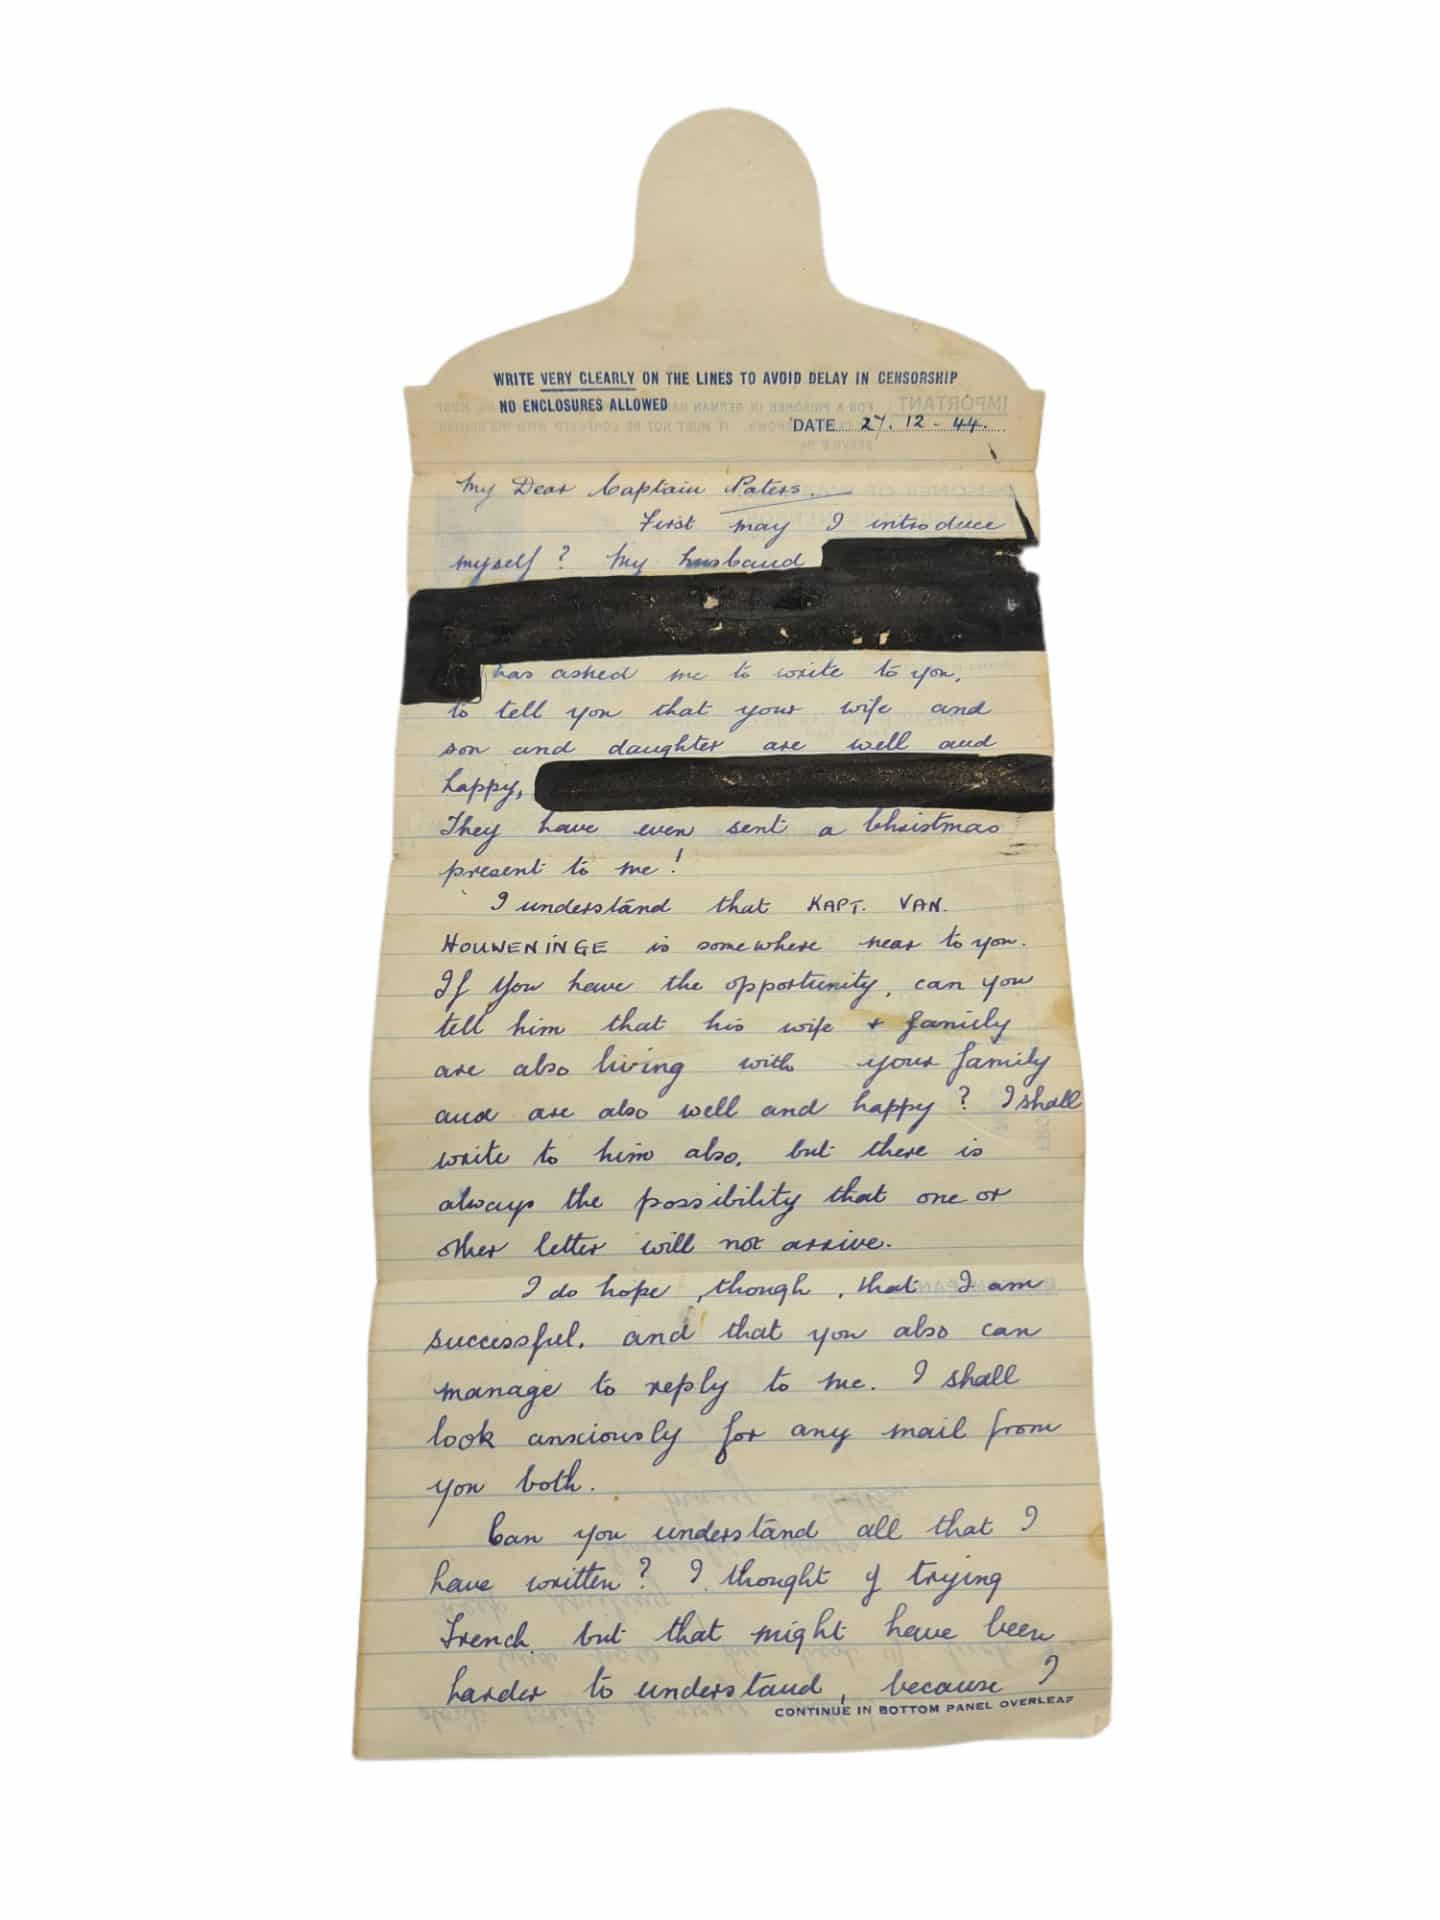 WRITE VERY CLEARLY ON THE LINES TO AVOID DELAY IN CENSORSHIP
NO ENCLOSURES ALLOWED
DATE 27. 12 - 44.
My Dear Captain Paters.
First may I introduce
myself? My husband
has asked me to write to you,
to tell you that your wife and
son and daughter are well and
happy,
They have even sent a Christmas
present to me!
I understand that KAPT. VAN.
HOUWENINGE is somewhere near to you.
If you have the opportunity, can you
tell him that his wife + family
are also living with your family
and are also well and happy? I shall
write to him also, but there is
always the possibility that one or
other letter will not arrive.
I do hope, though, that I am
successful, and that you also can
manage to reply to me. I shall
look anxiously for any mail from
you both.
Can you understand all that I
have written? I thought of trying
French, but that might have been
harder to understand, because I
CONTINUE IN BOTTOM PANEL OVERLEAF